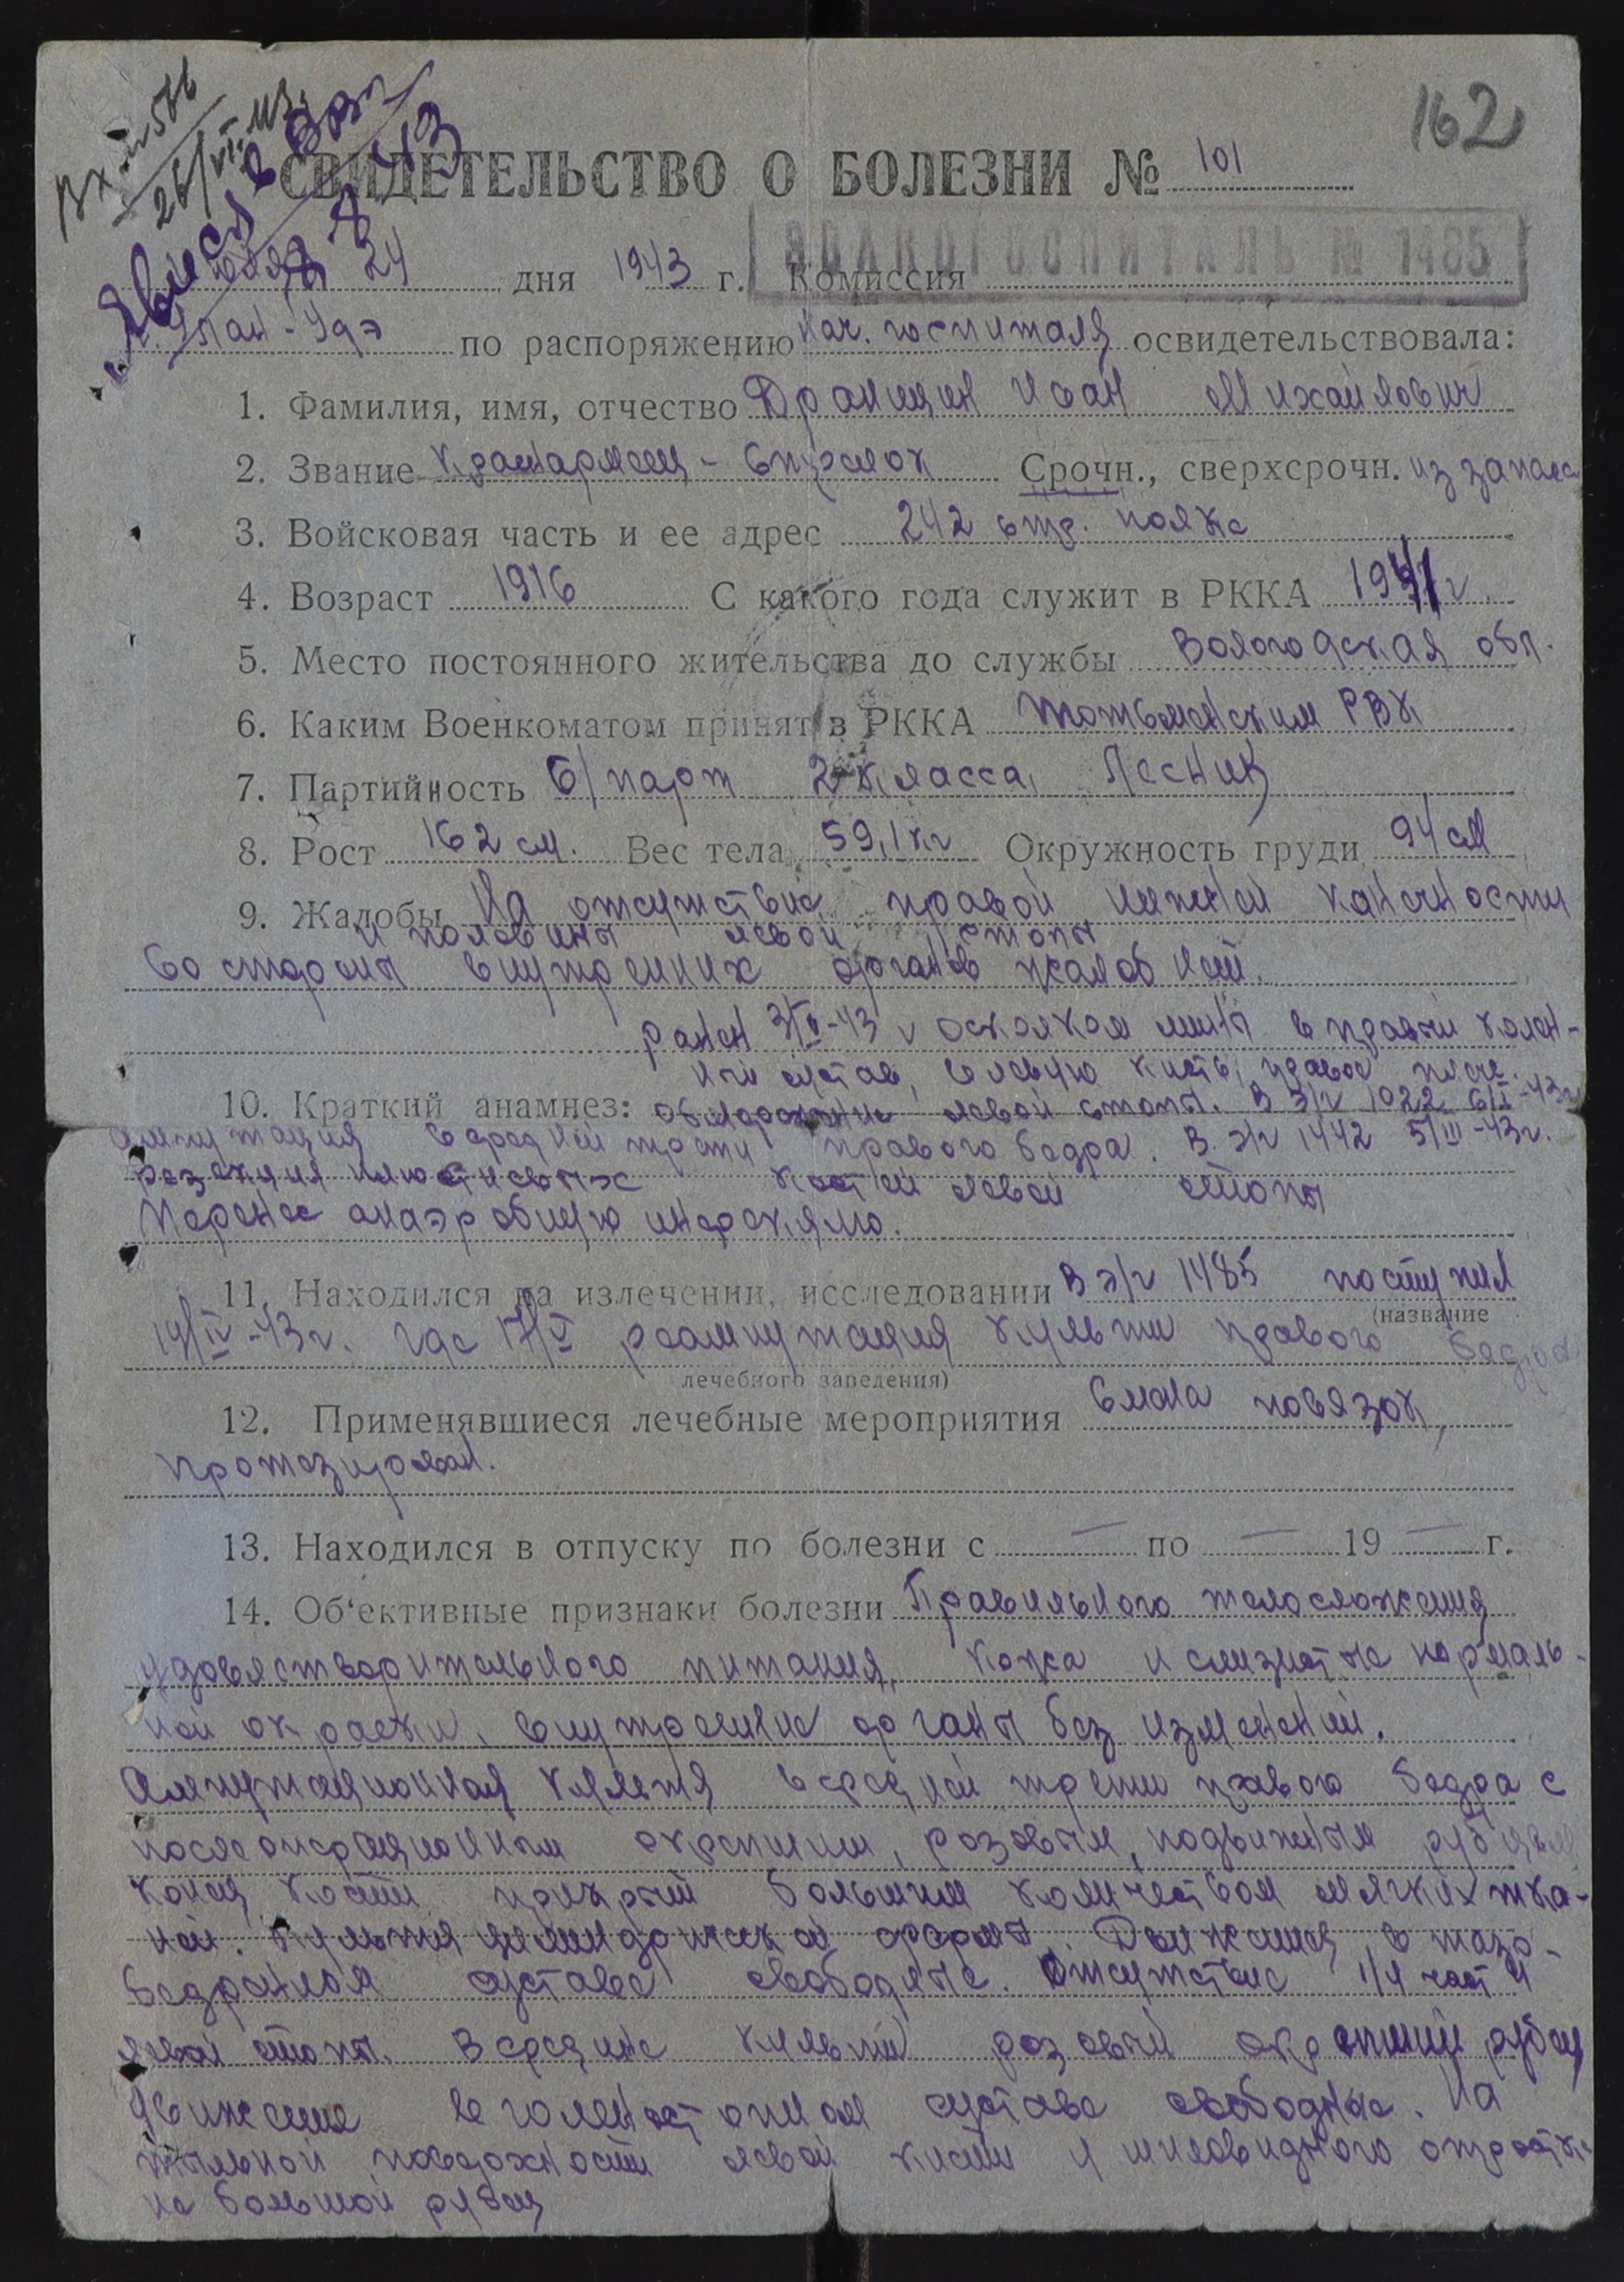 162
Вх. № 576
26/VI-43
СВИДЕТЕЛЬСТВО О БОЛЕЗНИ № 101
ЭВАКОГОСПИТАЛЬ № 1485
24 дня 1943 г. Комиссия
г. Улан-Удэ по распоряжению нач. госпиталя освидетельствовала:
1. Фамилия, имя, отчество Драницин Иван Михайлович
2. Звание Красноармеец - стрелок Срочн., сверхсрочн. из запаса
3. Войсковая часть и ее адрес 242 стр. полка
4. Возраст 1916 С какого года служит в РККА 1941 г.
5. Место постоянного жительства до службы Вологодская обл.
6. Каким Военкоматом принят в РККА Тотьменским РВК
7. Партийность б/парт 2 класса, Лесник
8. Рост 162 см. Вес тела 59,1 кг Окружность груди 94 см
9. Жалобы На отсутствие правой нижней конечности
и половины левой стопы
Со стороны внутренних органов жалоб нет.
Ранен 3/II-43 г осколком мины в правый колен-
ный сустав, в левую кисть, правое плечо.
10. Краткий анамнез: Обморожение левой стопы. В э/г 1022 6/II-43г
ампутация средней трети правого бедра. В э/г 1442 5/III-43г.
резекция плюсневых костей левой стопы
Перенес анаэробную инфекцию.
11. Находился на излечении, исследовании В э/г 1485 поступил
(название
19/IV-43 г. где 17/V реампутация культи правого бедра.
лечебного заведения)
12. Применявшиеся лечебные мероприятия Смена повязок,
протезирован.
13. Находился в отпуску по болезни с — по — 19 — г.
14. Об'ективные признаки болезни Правильного телосложения
удовлетворительного питания, кожа и слизистые нормаль-
ной окраски, внутренние органы без изменений.
Ампутационная культя в средней трети правого бедра с
послеоперационным окрепшим, розовым, подвижным рубцом
конец кости прикрыт большим количеством мягких тка-
ней. Культя цилиндрической формы. Движения в тазо-
бедренном суставе свободные. Отсутствие 1/4 части
левой стопы. В средине культи розовый окрепший рубец
движение в голеностопном суставе свободные. На
тыльной поверхности левой кисти у шиловидного отростка
не большой рубец